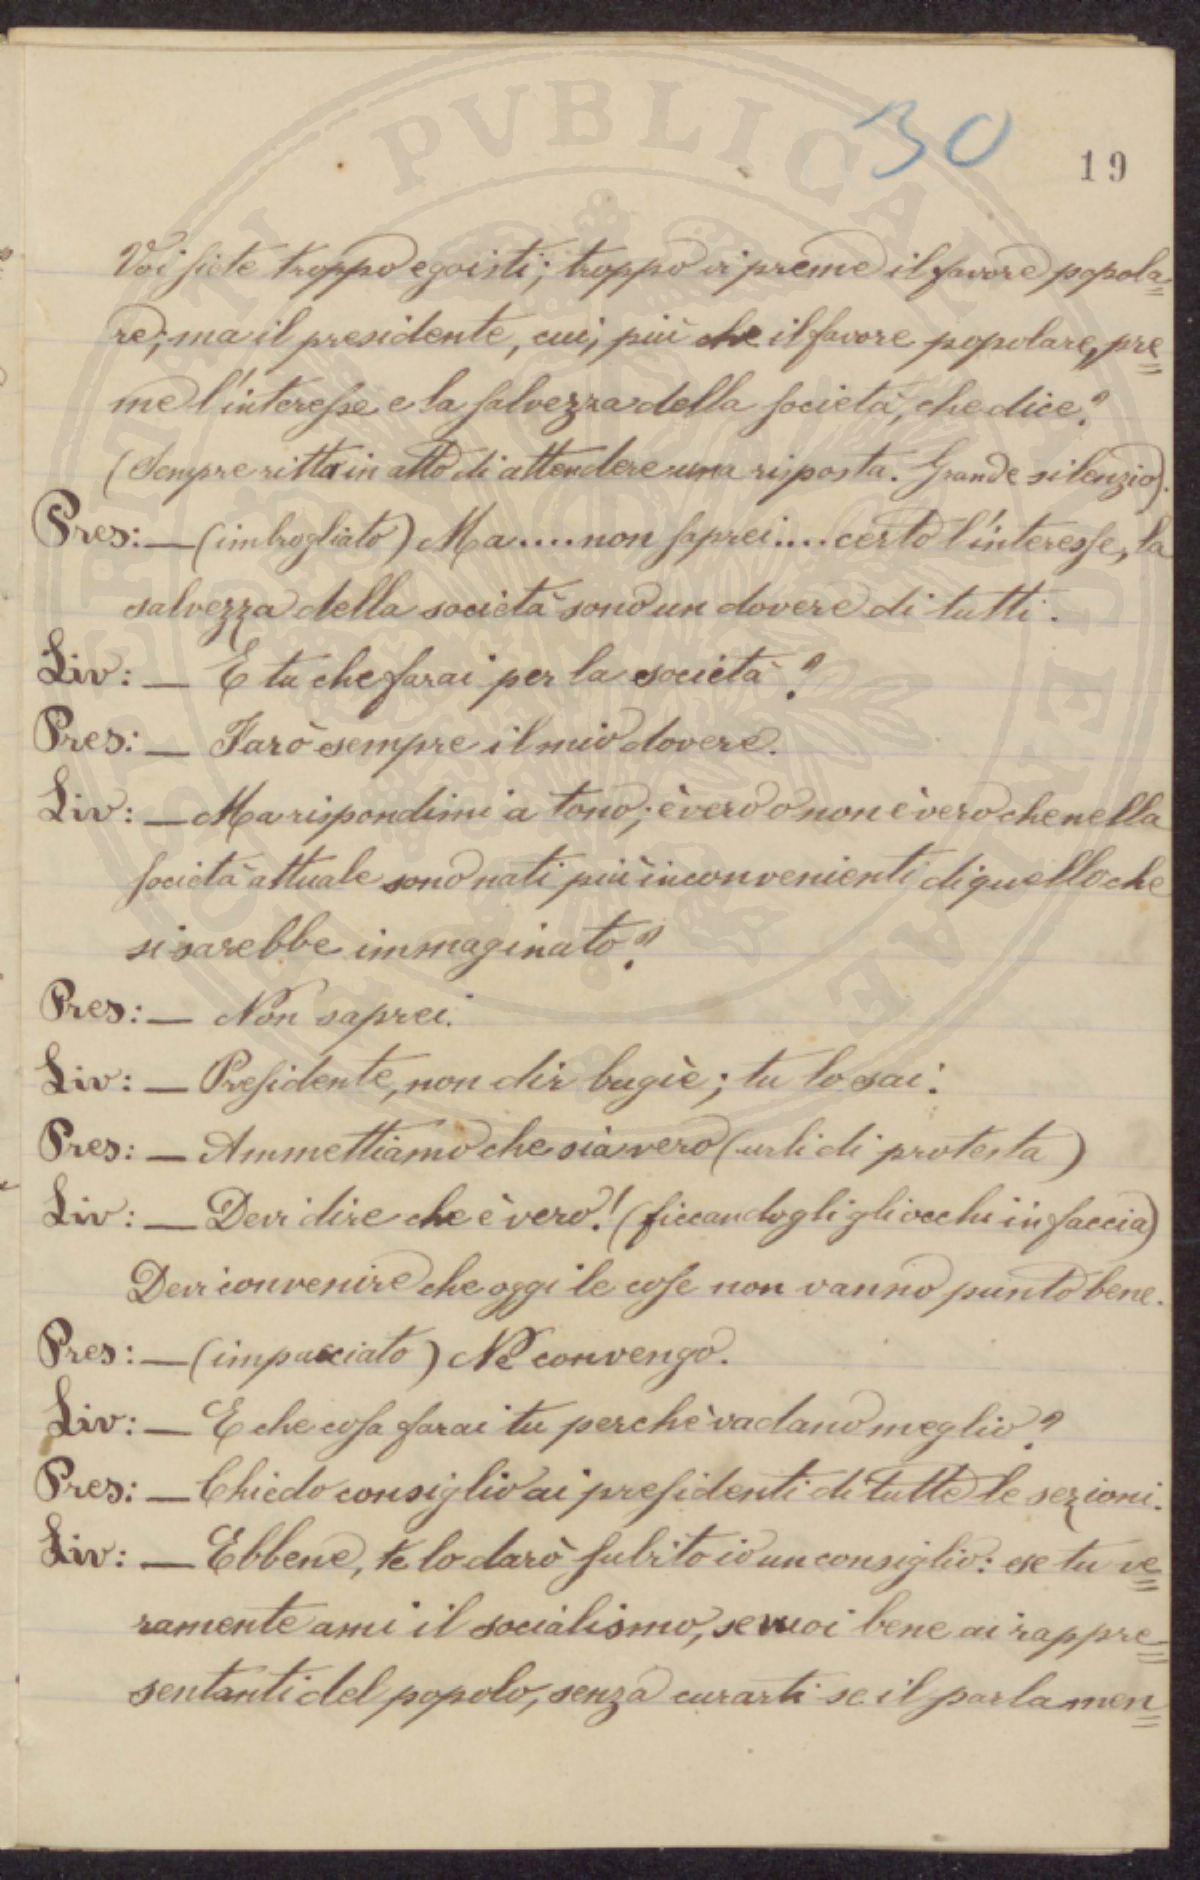 PROSPERITATI PVBLICAE AVGENDAE
30
19
Voi siete troppo egoisti; troppo vi preme il favore popola=
re; ma il presidente, cui, più che il favore popolare, pre=
me l'interesse e la salvezza della società, che dice?
(Sempre ritta in atto di attendere una risposta. Grande silenzio).
Pres: — (imbrogliato) Ma.... non saprei.... certo l'interesse, la
salvezza della società sono un dovere di tutti.
Liv: — E tu che farai per la società?
Pres: — Farò sempre il mio dovere.
Liv: — Ma rispondimi a tono; è vero o non è vero che nella
società attuale sono nati più inconvenienti di quello che
si sarebbe immaginato?
Pres: — Non saprei.
Liv: — Presidente, non dir bugiè; tu lo sai.
Pres: — Ammettiamo che sia vero (urli di protesta)
Liv: — Devi dire che è vero! (ficcandogli gli occhi in faccia)
Devi convenire che oggi le cose non vanno punto bene.
Pres: — (impacciato) Ne convengo.
Liv: — E che cosa farai tu perchè vadano meglio?
Pres: — Chiedo consiglio ai presidenti di tutte le sezioni.
Liv: — Ebbene, te lo darò subito io un consiglio: se tu ve=
ramente ami il socialismo, se vuoi bene ai rappre=
sentanti del popolo, senza curarti se il parlamen=